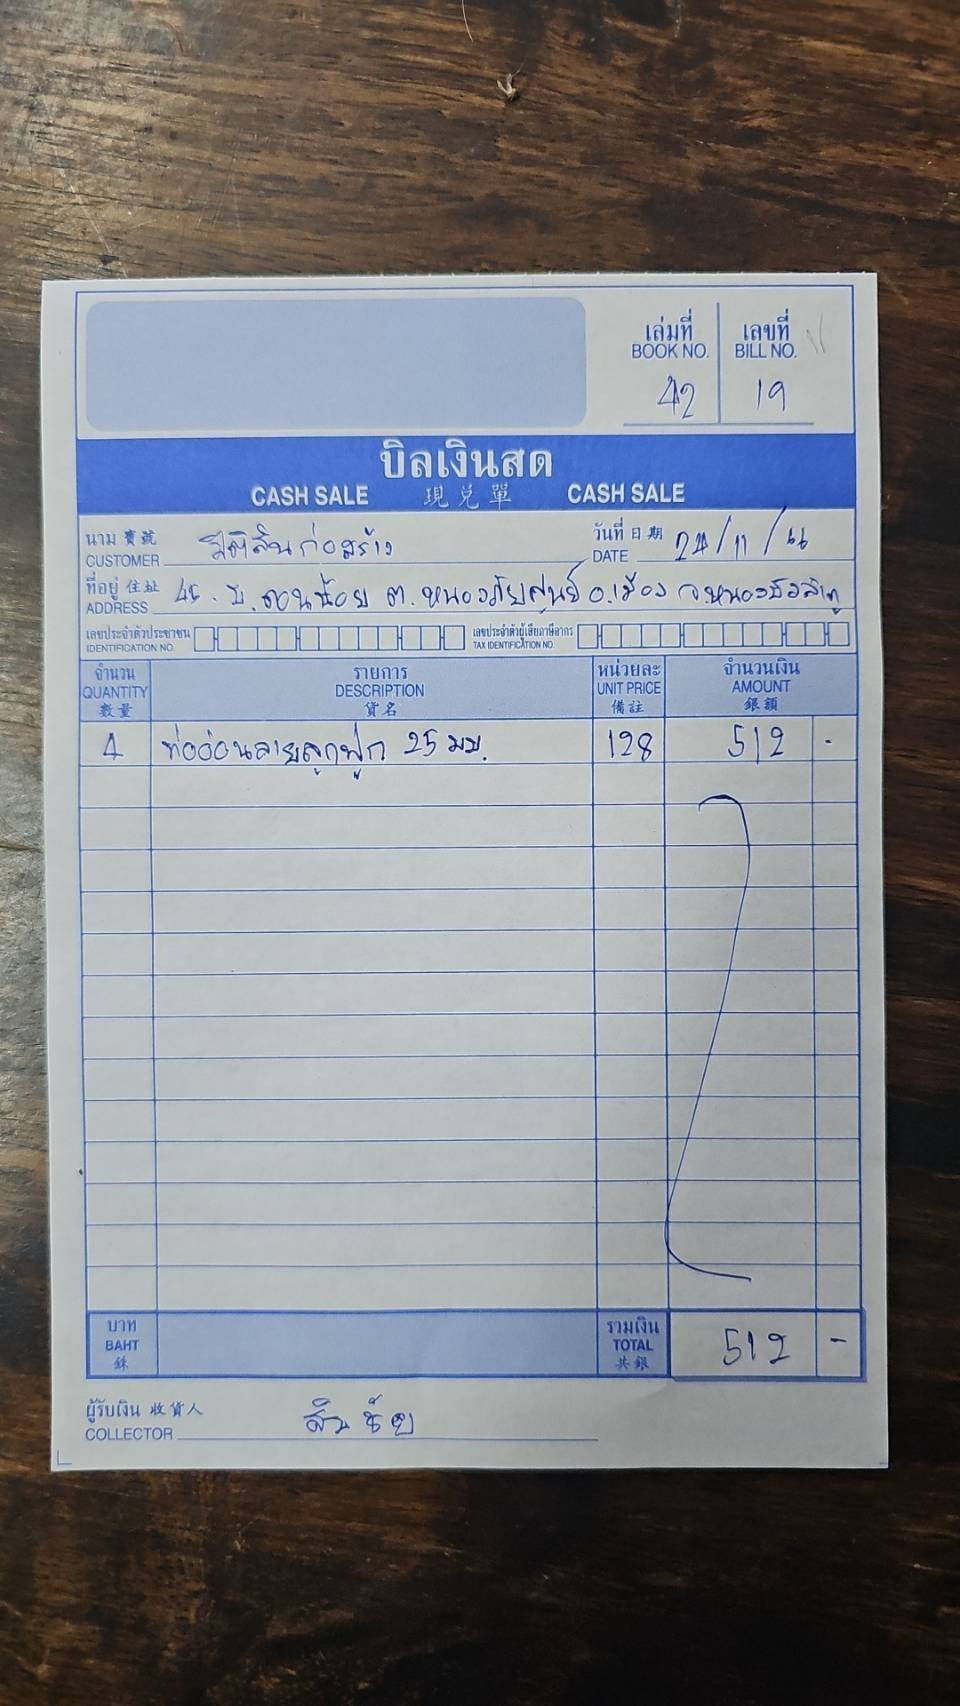 เล่มที่ เลขที่
BOOK NO. BILL NO.
42 19
บิลเงินสด
CASH SALE 現兌單 CASH SALE
นาม 賣號 ก่อสร้าง วันที่ 日期
CUSTOMER DATE 24/11/66
ที่อยู่ 住址 45 บ.ดอนน้อย ต.หนองภัยศูนย์ อ.เมือง จ.หนองบัวลำภู
ADDRESS
เลขประจำตัวประชาชน เลขประจำตัวผู้เสียภาษีอากร
IDENTIFICATION NO. TAX IDENTIFICATION NO.
จำนวน รายการ หน่วยละ จำนวนเงิน
QUANTITY DESCRIPTION UNIT PRICE AMOUNT
数量 貨名 備註 銀額
4 ท่ออ่อนลายลูกฟูก 25 มม. 128 512 -
บาท รวมเงิน
BAHT TOTAL 512 -
銖 共銀
ผู้รับเงิน 收貨人
COLLECTOR